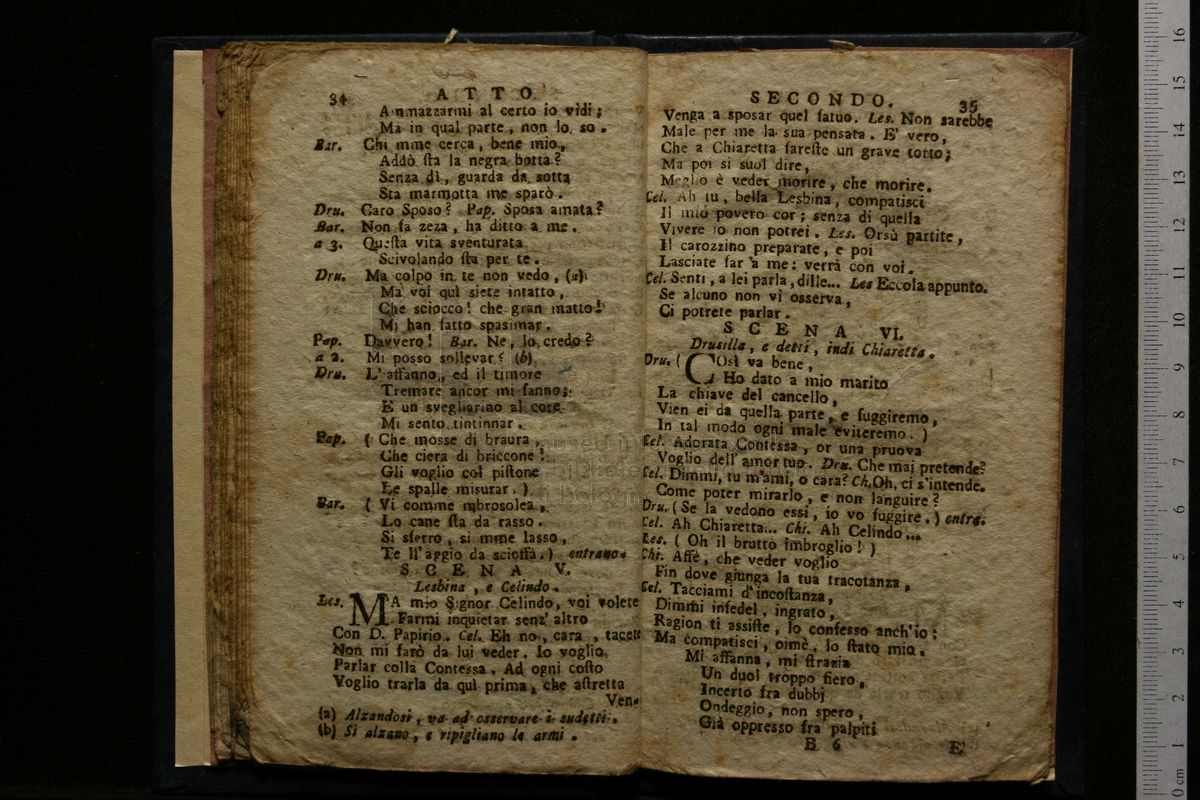 34 ATTO
Ammazzarmi al certo io vidi;
Ma in qual parte, non lo so.
Bar. Chi mme cerca, bene mio,
Addò sta la negra botta?
Senza dì, guarda da sotta
Sta marmotta me sparò.
Dru. Caro Sposo? Pap. Sposa amata?
Bar. Non fa zeza, ha ditto a me.
a 3. Questa vita sventurata
Scivolando sta per te.
Dru. Ma colpo in te non vedo, (a)
Ma voi quì siete intatto,
Che sciocco! che gran matto!
Mi han fatto spasimar.
Pap. Davvero! Bar. Ne, lo credo?
a 2. Mi posso sollevar? (b)
Dru. L'affanno, ed il timore
Tremare ancor mi fanno;
E un svegliarino al core
Mi sento tintinnar.
Pap. ( Che mosse di braura,
Che ciera di briccone!
Gli voglio col pistone
Le spalle misurar. )
Bar. ( Vi comme mbrosolea,
Lo cane sta da rasso.
Si sferro, si mme lasso,
Te ll'aggio da scioffà. ) entrano.
SCENA V.
Lesbina, e Celindo.
Les. MA mio Signor Celindo, voi volete
Farmi inquietar senz'altro
Con D. Papirio. Cel. Eh no, cara, tacete
Non mi farò da lui veder. Io voglio
Parlar colla Contessa. Ad ogni costo
Voglio trarla da quì prima, che astretta
Ven-
(a) Alzandosi, va ad osservare i sudetti.
(b) Si alzano, e ripigliano le armi.
SECONDO. 35
Venga a sposar quel fatuo. Les. Non sarebbe
Male per me la sua pensata. E' vero,
Che a Chiaretta fareste un grave torto;
Ma poi si suol dire,
Meglio è veder morire, che morire.
Cel. Ah tu, bella Lesbina, compatisci
Il mio povero cor; senza di quella
Vivere io non potrei. Les. Orsù partite,
Il carozzino preparate, e poi
Lasciate far a me: verrà con voi.
Cel. Senti, a lei parla, dille... Les Eccola appunto.
Se alcuno non vi osserva,
Ci potrete parlar.
SCENA VI.
Drusilla, e detti, indi Chiaretta.
Dru. ( COsì va bene,
Ho dato a mio marito
La chiave del cancello,
Vien ei da quella parte, e fuggiremo,
In tal modo ogni male eviteremo. )
Cel. Adorata Contessa, or una pruova
Voglio dell'amor tuo. Dru. Che mai pretende?
Cel. Dimmi, tu m'ami, o cara? Ch. Oh, ci s'intende.
Come poter mirarlo, e non languire?
Dru. ( Se la vedono essi, io vo fuggire. ) entra.
Cel. Ah Chiaretta... Chi. Ah Celindo...
Les. ( Oh il brutto imbroglio! )
Chi. Affè, che veder voglio
Fin dove giunga la tua tracotanza,
Cel. Tacciami d'incostanza,
Dimmi infedel, ingrato,
Ragion ti assiste, lo confesso anch'io;
Ma compatisci, oimè, lo stato mio.
Mi affanna, mi strazia
Un duol troppo fiero,
Incerto fra dubbj
Ondeggio, non spero,
Già oppresso fra' palpiti
B 6 E